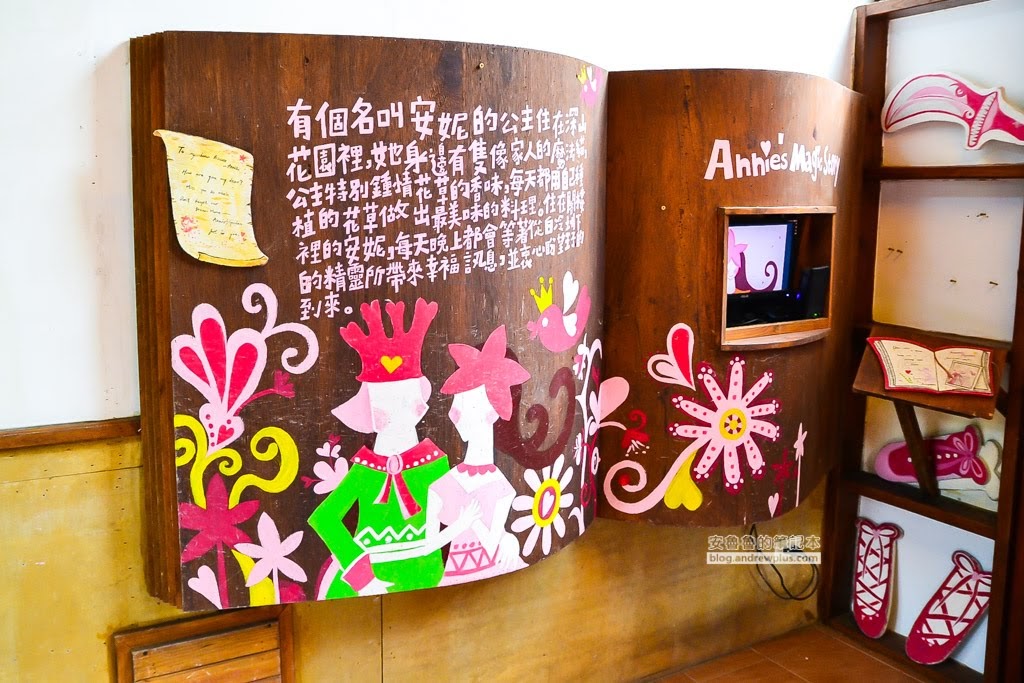 有個名叫安妮的公主住在深山
花園裡,她身邊有隻像家人的魔法貓,
公主特別鍾情花草的香味,每天都用自己種
植的花草做出最美味的料理。住在
裡的安妮,每天晚上都會等著從
的精靈所帶來幸福訊息,並衷心盼望
到來。
Annie's Magic Story
安魯魯的筆記本
blog.andrewplus.com